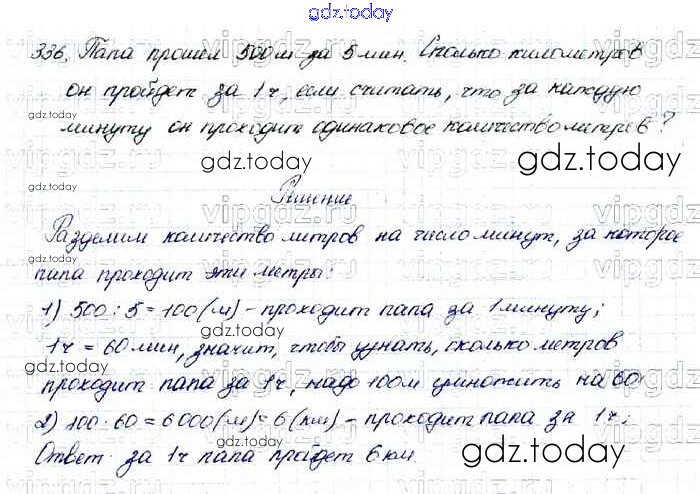 gdz.today
336. Папа прошел 500 м за 5 мин. Сколько километров
он пройдет за 1 ч, если считать, что за каждую
минуту он проходит одинаковое количество метров?
gdz.today
gdz.today
gdz.today
Решение
Разделим количество метров на число минут, за которое
gdz.today
папа проходит эти метры:
1) 500 : 5 = 100 (м) - проходит папа за 1 минуту;
gdz.today
1 ч = 60 мин, значит, чтобы узнать, сколько метров
gdz.today
проходит папа за 1 ч, надо 100 м умножить на 60:
2) 100 · 60 = 6000 (м) = 6 (км) - проходит папа за 1 ч;
gdz.today
gdz.today
Ответ: за 1 ч папа пройдет 6 км.